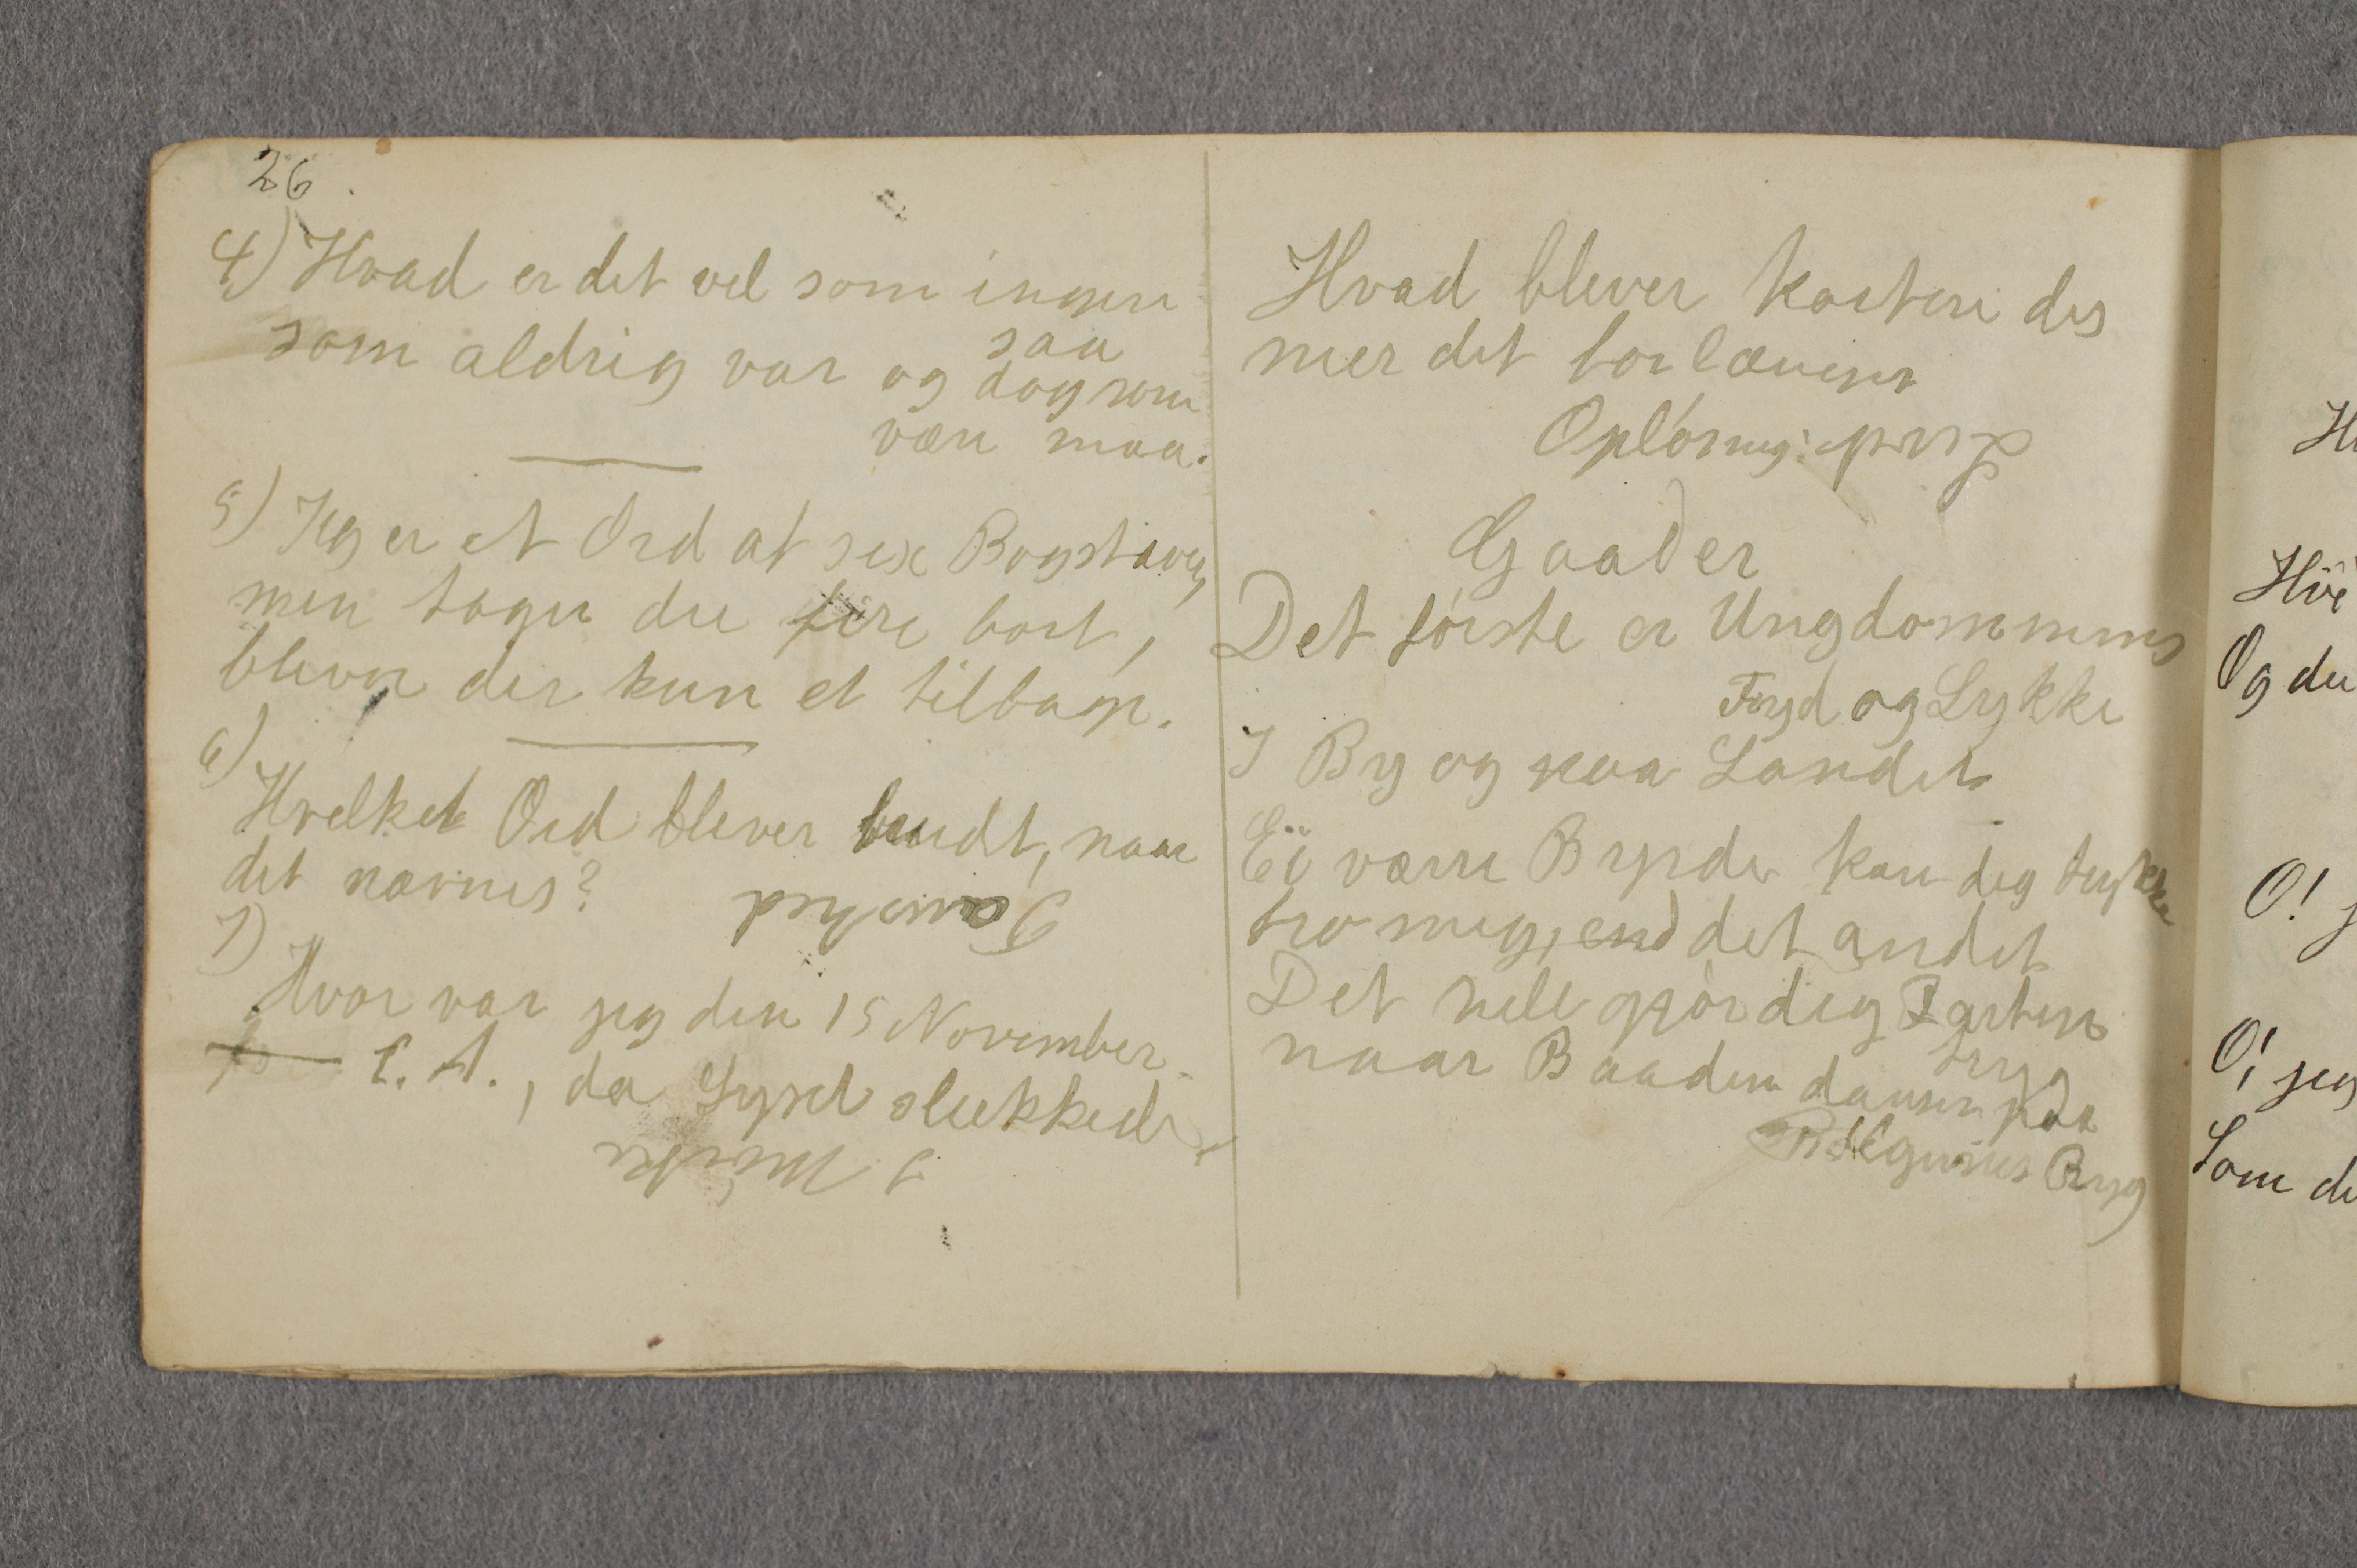 26.
4) Hvad er det vel som ingen
saa
som aldrig var og dog som
være maa.
5) Jeg er et Ord at sex Bogstaver,
men tager du fire bort,
bliver der kun et tilbage.
6)
Hvelket Ord bliver brudt, naar
det nævnes?
Taushed
7)
Hvor var jeg den 15 November
f. A., da Lyset slukkede
I Mørke
Hvad blever kortere des
mer det forlænges
Opløsning:
Gaader
Det første er Ungdommens
Fryd og Lykke
I By og paa Landet
Ei værre Byrde kan dig trykke
tro mig, end det andet
Det hele gjør dig Farten
tryg
naar Baaden danser paa
Bølgernes Ryg
H
Hvi
Og du
O! j
O! jeg
Som de